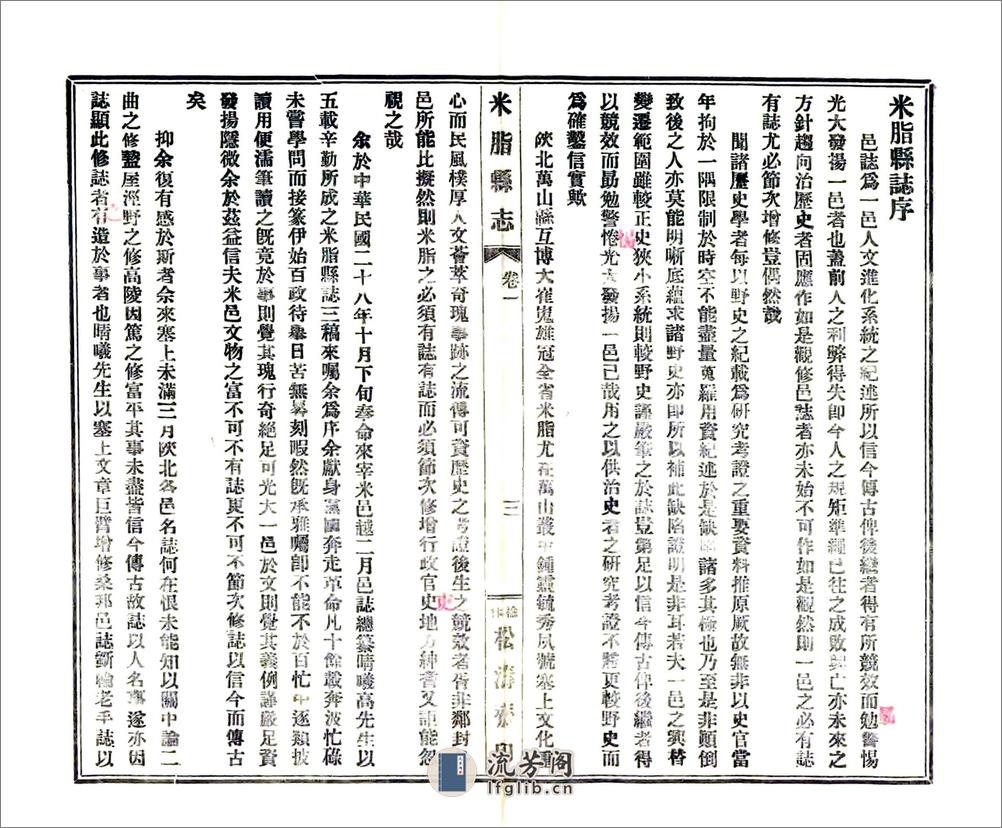 米脂縣誌序
邑誌爲一邑人文進化系統之紀述所以信今傳古俾後繼者得有所競效而勉警惕
光大發揚一邑者也蓋前人之利弊得失即今人之規矩準繩已往之成敗興亡亦未來之
方針趨向治歷史者固應作如是觀修邑誌者亦未始不可作如是觀然則一邑之必有誌
有誌尤必節次增修豈偶然哉
聞諸歷史學者每以野史之紀載爲研究考證之重要資料推原厥故無非以史官當
年拘於一隅限制於時空不能盡量蒐羅用資紀述於是缺陷諸多其極也乃至是非顛倒
致後之人亦莫能明晰底蘊求諸野史亦即所以補此缺陷證明是非耳若夫一邑之興替
變遷範圍雖較正史狹小系統則較野史謹嚴筆之於誌豈第足以信今傳古俾後繼者得
以競效而勗勉警惕光大發揚一邑已哉用之以供治史者之研究考證不將更較野史而
爲確鑿信實歟
陝北萬山緜互博大崔嵬雄冠全省米脂尤在萬山叢中鍾靈毓秀夙號塞上文化重
米脂縣志
卷一
三
松濤齋印
心而民風樸厚人文薈萃奇瑰事跡之流傳可資歷史之考證後生之競效者胥非鄰封
邑所能比擬然則米脂之必須有誌而必須節次修增行政官吏地方紳耆又詎能忽
視之哉
余於中華民國二十八年十月下旬奉命來宰米邑越二月邑誌總纂晴曦高先生以
五載辛勤所成之米脂縣誌三稿來囑余爲序余獻身黨國奔走革命凡十餘載奔波忙碌
未嘗學問而接篆伊始百政待舉日苦無晷刻暇然既承雅囑卽不能不於百忙中逐類披
讀用便濡筆讀之既竟於事則覺其瑰行奇絕足可光大一邑於文則覺其義例謹嚴足資
發揚隱微余於茲益信夫米邑文物之富不可不有誌更不可不節次修誌以信今而傳古
矣
抑余復有感於斯者余來塞上未滿三月陝北各邑名誌何在恨未能知以關中論二
曲之修盩厔涇野之修高陵因篤之修富平其事未盡皆信今傳古故誌以人名事遂亦因
誌顯此修誌者有造於事者也晴曦先生以塞上文章巨臂增修桑邦邑誌斲輪老手誌以
流芳阁
lfglib.cn